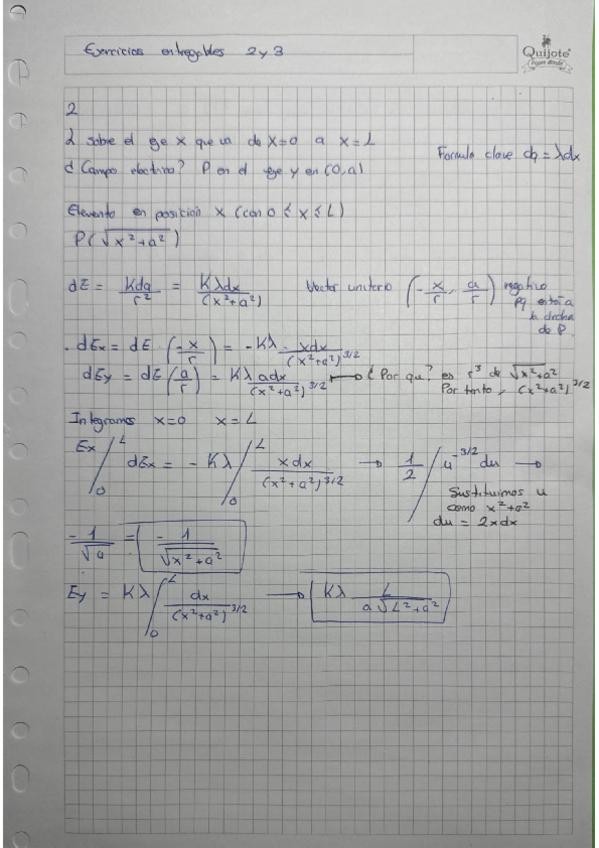 Ejercicios entregables 2 y 3
Quijote
2
λ sobre el eje x que va de x=0 a x=L
Formula clave dq = λdx
¿Campo electrico? P en el eje y en (0,a)
Elemento en posicion x (con 0 ≤ x ≤ L)
P(√(x²+a²))
dE = Kdq/r² = Kλdx/(x²+a²)
Vector unitario (-x/r, a/r) negativo
pq esta a
la drcha
de P.
. dEx = dE (-x/r) = -Kλ · xdx/(x²+a²)^3/2
dEy = dE (a/r) = Kλ adx/(x²+a²)^3/2 → ¿Por que? es r³ de √(x²+a²)
Por tanto, (x²+a²)^3/2
Integramos x=0 x=L
Ex ∫₀ᴸ dEx = -Kλ ∫₀ᴸ xdx/(x²+a²)^3/2 → 1/2 ∫ u^-3/2 du →
Sustituimos u
como x²+a²
du = 2xdx
-1/√a = -1/√(x²+a²)
Ey = Kλ ∫₀ᴸ dx/(x²+a²)^3/2 → Kλ L/(a√(L²+a²))